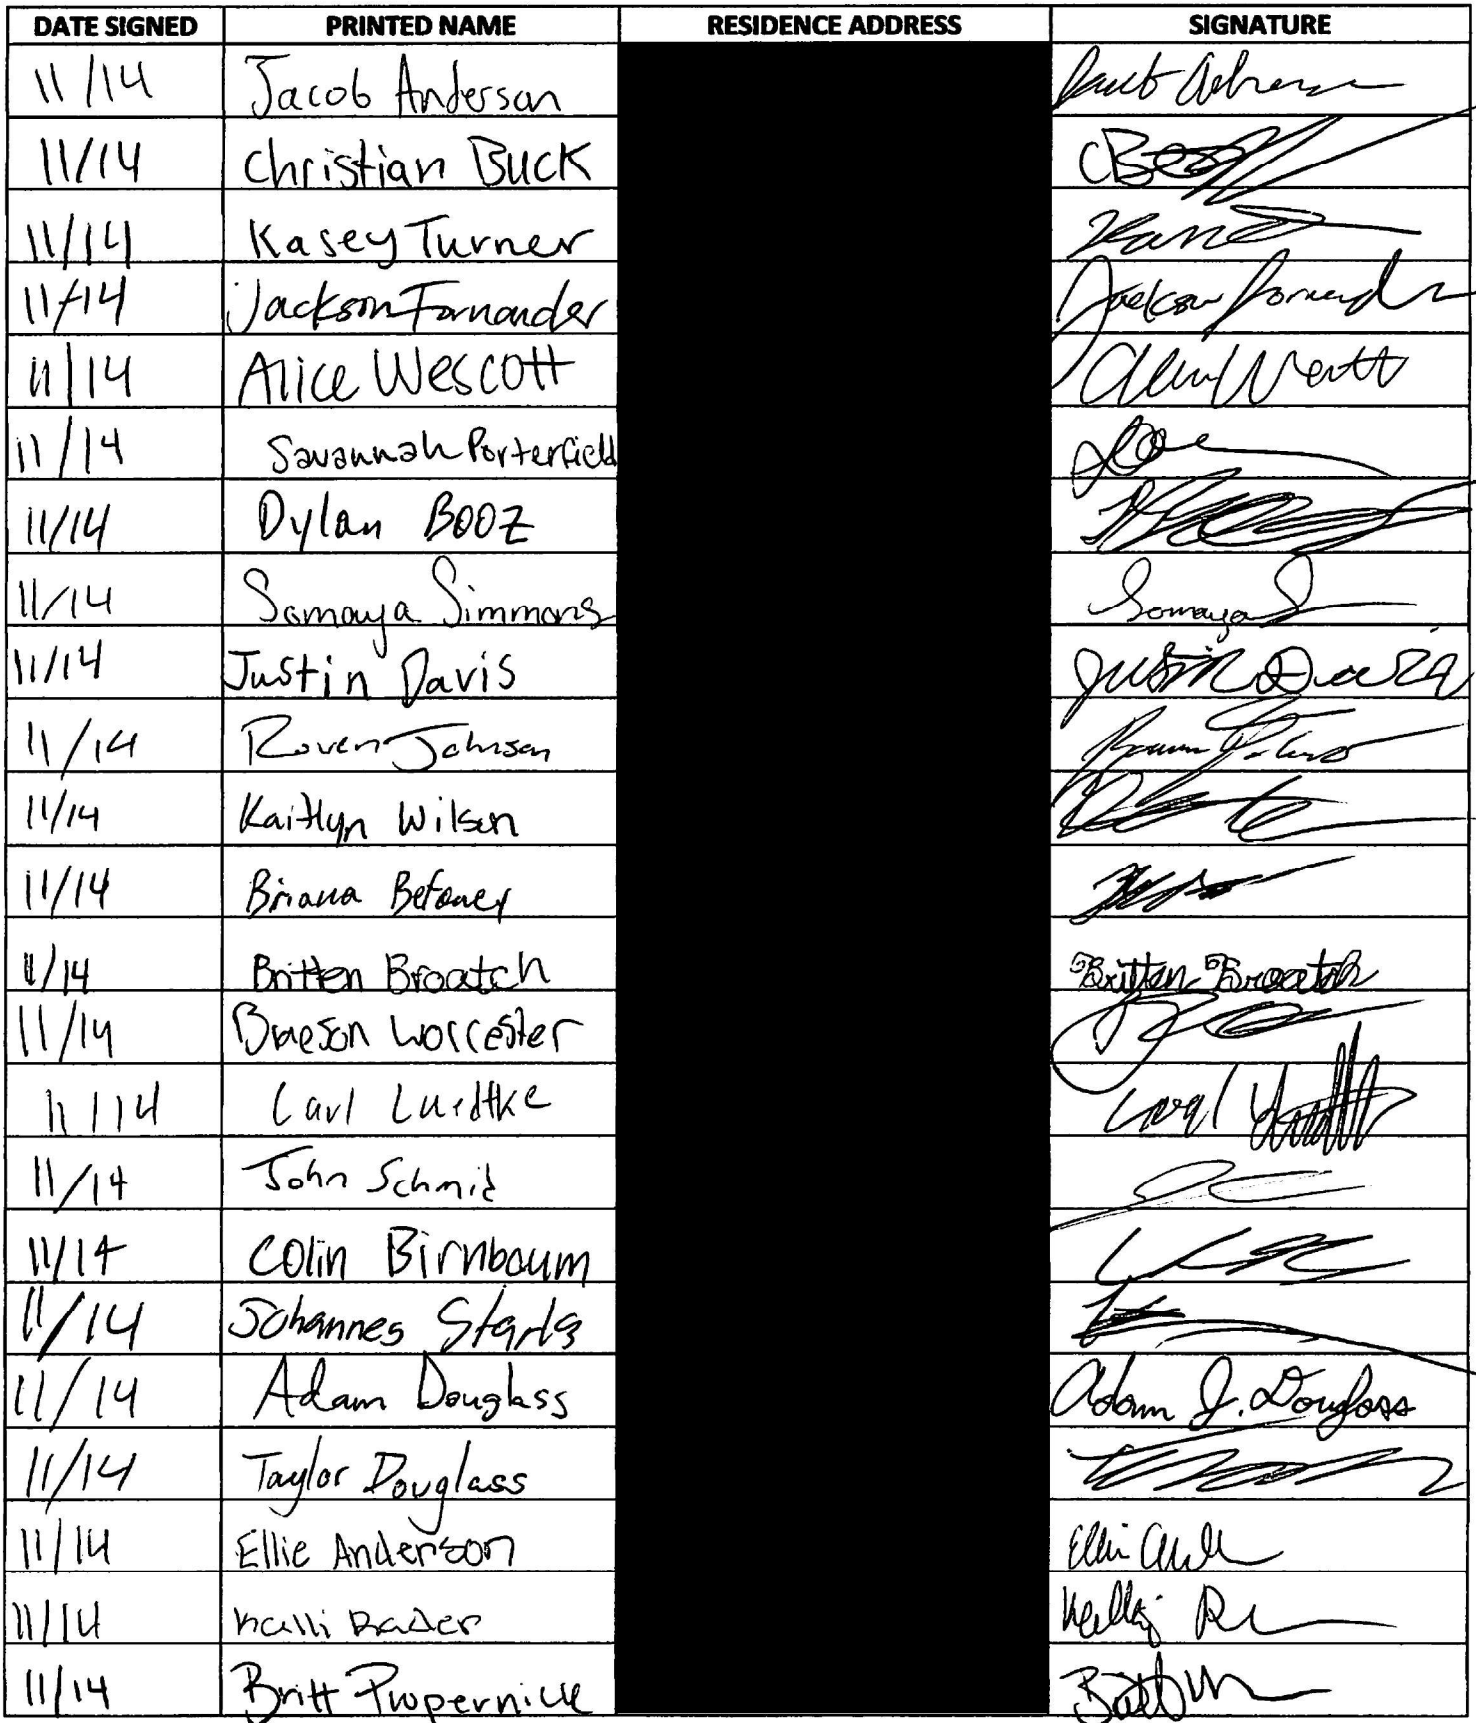 DATE SIGNED PRINTED NAME RESIDENCE ADDRESS SIGNATURE
11/14 Jacob Anderson
11/14 Christian Buck
11/14 Kasey Turner
11/14 Jackson Fornander
11/14 Alice Wescott
11/14 Savannah Porterfield
11/14 Dylan Booz
11/14 Somaya Simmons Somaya S
11/14 Justin Davis Justin
11/14 Raven Johnson
11/14 Kaitlyn Wilson
11/14 Briana
11/14 Britten Broatch Britten Broatch
11/14 Braeson Worcester
11/14 Carl Luedtke Carl
11/14 John Schmid
11/14 Colin Birnbaum
11/14 Johannes
11/14 Adam Douglass Adam J. Douglass
11/14 Taylor Douglass
11/14 Ellie Anderson Ellie
11/14 Kalli Rader
11/14 Britt